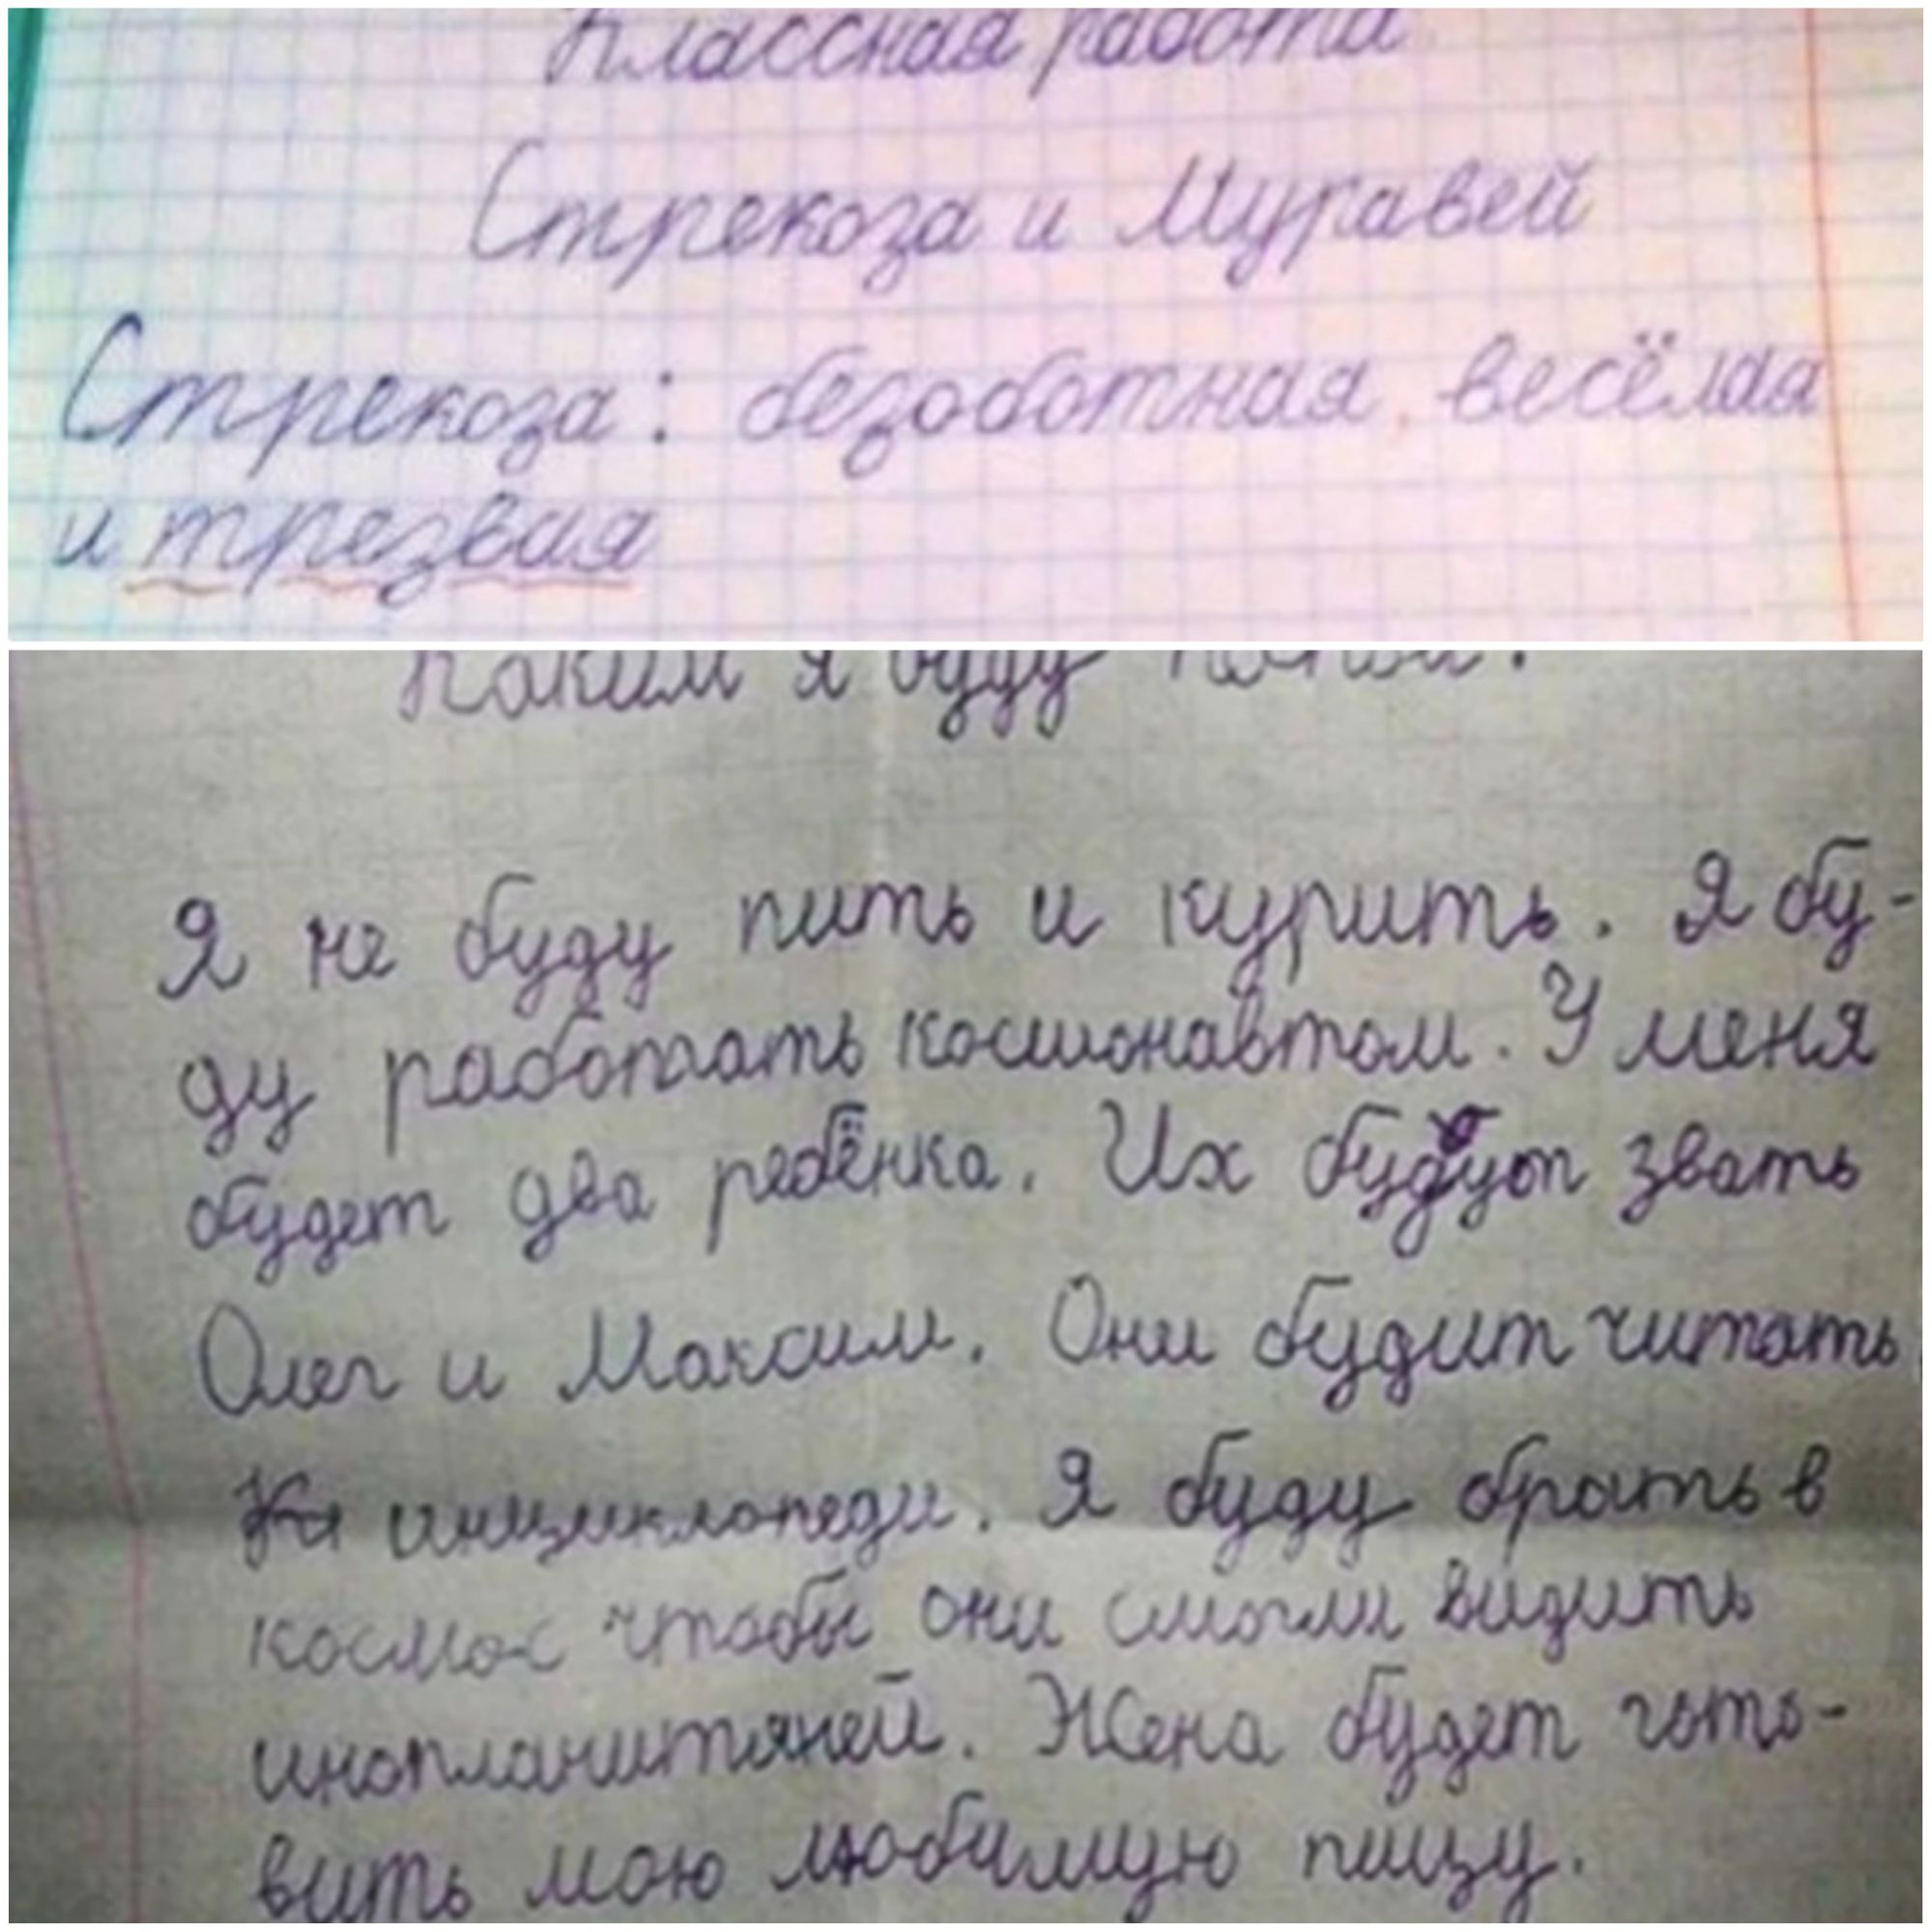 Классная работа
Стрекоза и Муравей
Стрекоза: безоботная, весёлая
и трезвая
Каким я буду папой.
Я не буду пить и курить. Я бу-
ду работать космонавтом. У меня
будет два ребёнка. Их будут звать
Олег и Максим. Они будит читать
инциклопеди. Я буду брать в
космос чтобы они смогли видить
инопланитяней. Жена будет гото-
вить мою любимую пицу.